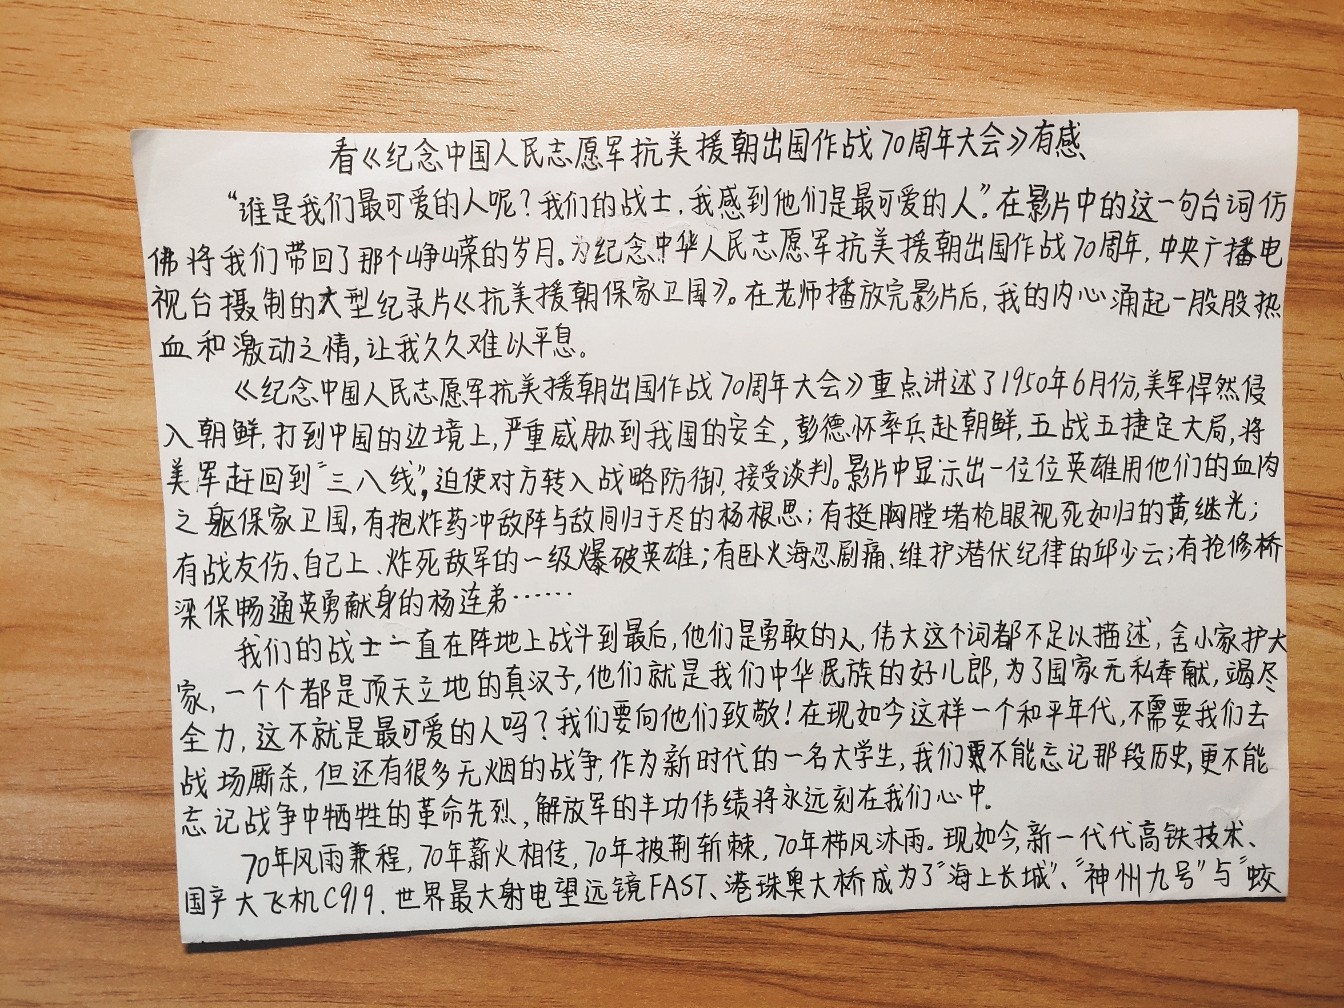 看《纪念中国人民志愿军抗美援朝出国作战70周年大会》有感
“谁是我们最可爱的人呢？我们的战士，我感到他们是最可爱的人”。在影片中的这一句台词仿
佛将我们带回了那个峥嵘的岁月。为纪念中华人民志愿军抗美援朝出国作战70周年，中央广播电
视台摄制的大型纪录片《抗美援朝保家卫国》。在老师播放完影片后，我的内心涌起一股股热
血和激动之情，让我久久难以平息。
《纪念中国人民志愿军抗美援朝出国作战70周年大会》重点讲述了1950年6月份，美军悍然侵
入朝鲜，打到中国的边境上，严重威胁到我国的安全，彭德怀率兵赴朝鲜，五战五捷定大局，将
美军赶回到“三八线”，迫使对方转入战略防御，接受谈判。影片中显示出一位位英雄用他们的血肉
之躯保家卫国，有抱炸药冲敌阵与敌同归于尽的杨根思；有挺胸膛堵枪眼视死如归的黄继光；
有战友伤、自己上、炸死敌军的一级爆破英雄；有卧火海忍剧痛、维护潜伏纪律的邱少云；有抢修桥
梁保畅通英勇献身的杨连弟……
我们的战士一直在阵地上战斗到最后，他们是勇敢的人，伟大这个词都不足以描述，舍小家护大
家，一个个都是顶天立地的真汉子，他们就是我们中华民族的好儿郎，为了国家无私奉献，竭尽
全力，这不就是最可爱的人吗？我们要向他们致敬！在现如今这样一个和平年代，不需要我们去
战场厮杀，但还有很多无烟的战争，作为新时代的一名大学生，我们更不能忘记那段历史，更不能
忘记战争中牺牲的革命先烈，解放军的丰功伟绩将永远刻在我们心中。
70年风雨兼程，70年薪火相传，70年披荆斩棘，70年栉风沐雨。现如今，新一代代高铁技术、
国产大飞机C919、世界最大射电望远镜FAST、港珠奥大桥成为了“海上长城”、“神州九号”与“蛟